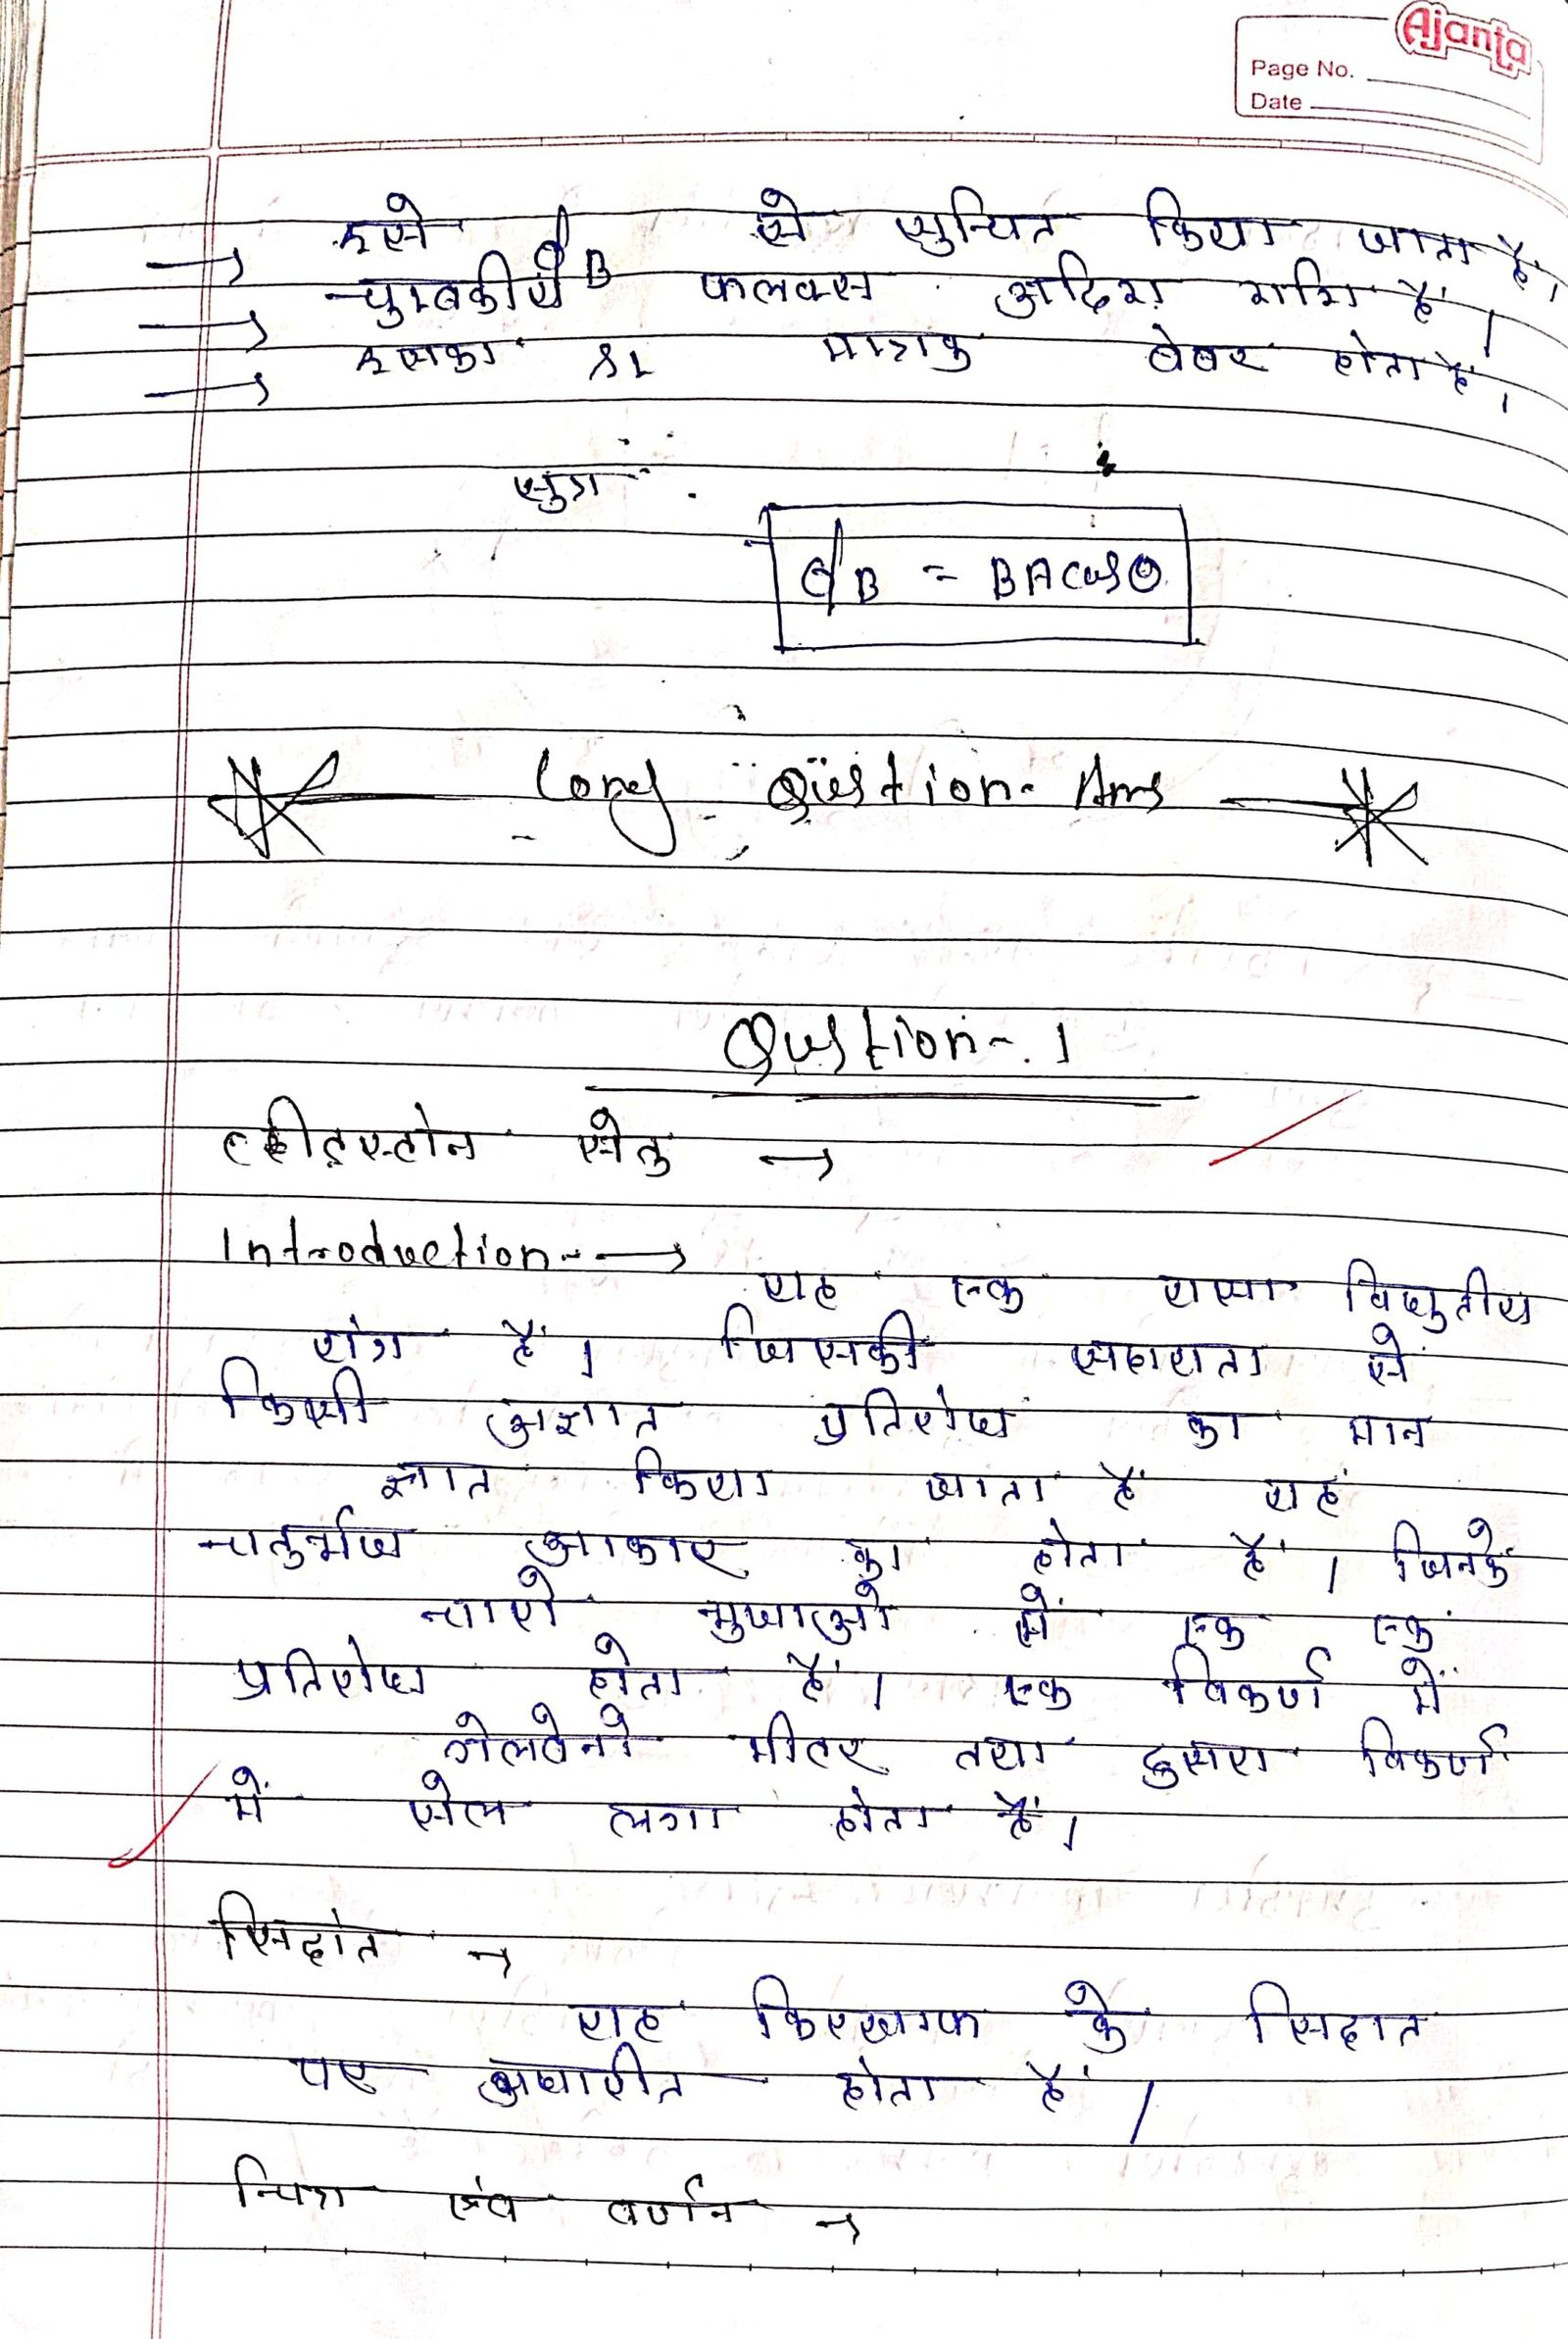 Ajanta
Page No.
Date
→ इसे ϕB से सुचित किया जाता है।
→ चुम्बकीय फलक्स अदिश राशि है।
→ इसका SI मात्रक वेबर होता है।
सुत्र
ϕB = BA cosθ
Long Question Ans
Question-1
व्हीट्स्टोन सेतु →
Introduction → यह एक ऐसा विधुतीय
यंत्र हैं। जिसकी सहायता से
किसी अज्ञात प्रतिरोध का मान
ज्ञात किया जाता हैं यह
चतुर्भुज आकार का होता हैं। जिनके
चारो भुजाओ में एक एक
प्रतिरोध होता हैं। एक विकर्ण में
गेलवेनो मीटर तथा दुसरा विकर्ण
में सेल लगा होता हैं।
सिदांत →
यह किरखाफ के सिदात
पर अधारीत होता हैं।
चित्र एंव वर्णन →